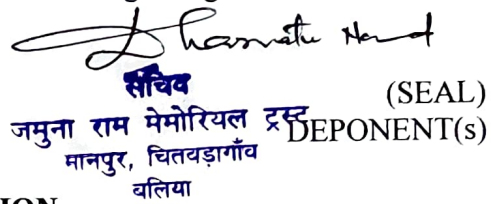 सचिव
(SEAL)
जमुना राम मेमोरियल ट्रस्ट
DEPONENT(s)
मानपुर, चितवड़ागाँव
बलिया